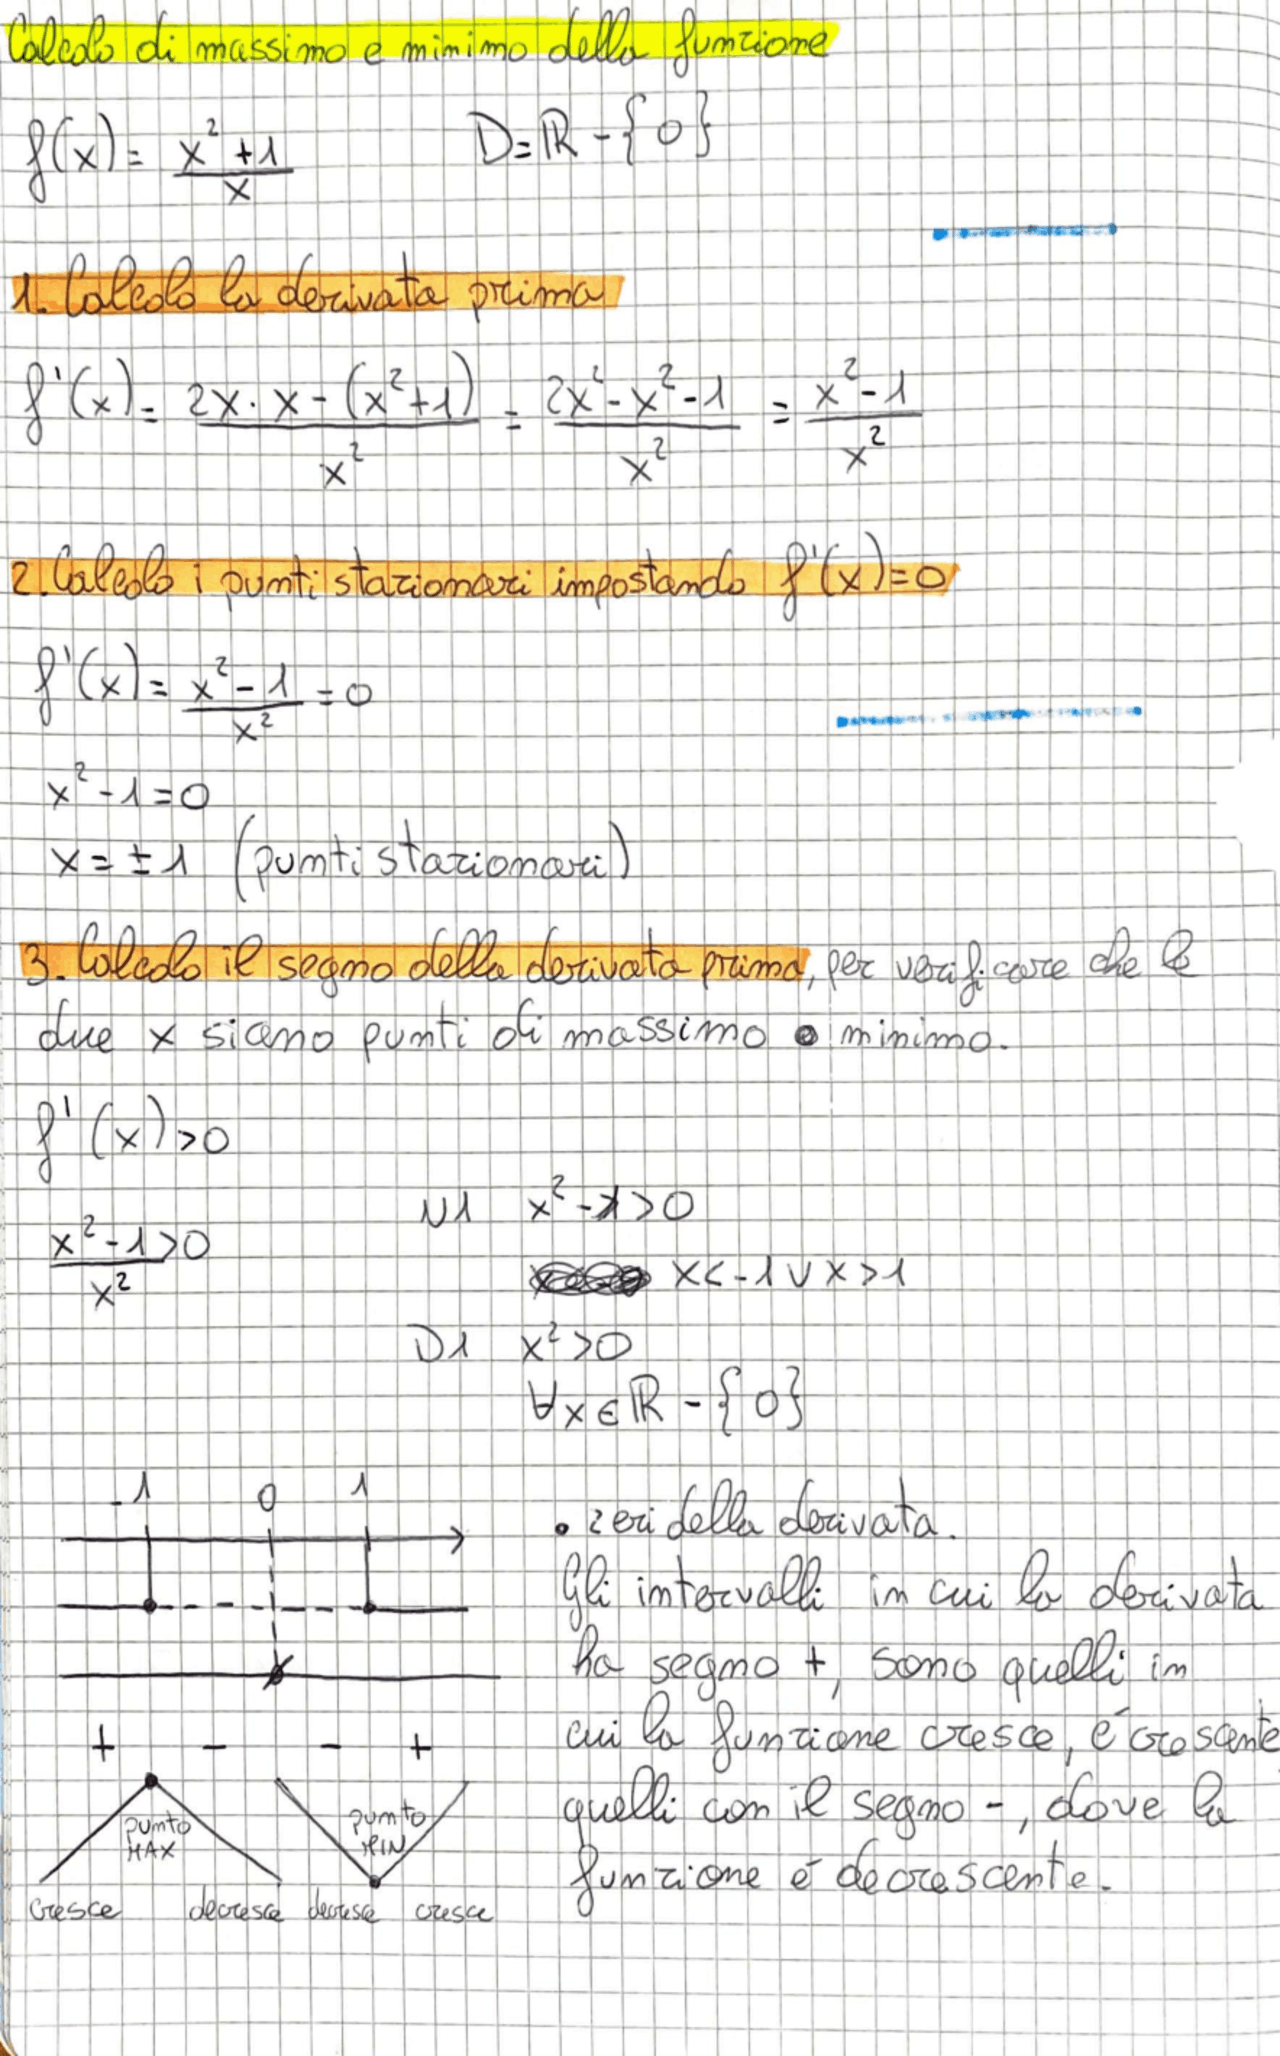 Calcolo di massimo e minimo della funzione
f(x) = (x²+1)/x   D=ℝ-{0}
1. Calcolo la derivata prima
f'(x) = (2x·x-(x²+1))/x² = (2x²-x²-1)/x² = (x²-1)/x²
2. Calcolo i punti stazionari impostando f'(x)=0
f'(x) = (x²-1)/x² = 0
x²-1=0
x=±1 (punti stazionari)
3. Calcolo il segno della derivata prima, per verificare che le
due x siano punti di massimo o minimo.
f'(x)>0
(x²-1)/x² >0
N1 x²-1>0
x<-1 ∨ x>1
D1 x²>0
∀x∈ℝ-{0}
-1 0 1
+ - - +
punto MAX
punto MIN
cresce decresce decresce cresce
• zeri della derivata.
Gli intervalli in cui la derivata
ha segno +, sono quelli in
cui la funzione cresce, è crescente
quelli con il segno -, dove la
funzione è decrescente.